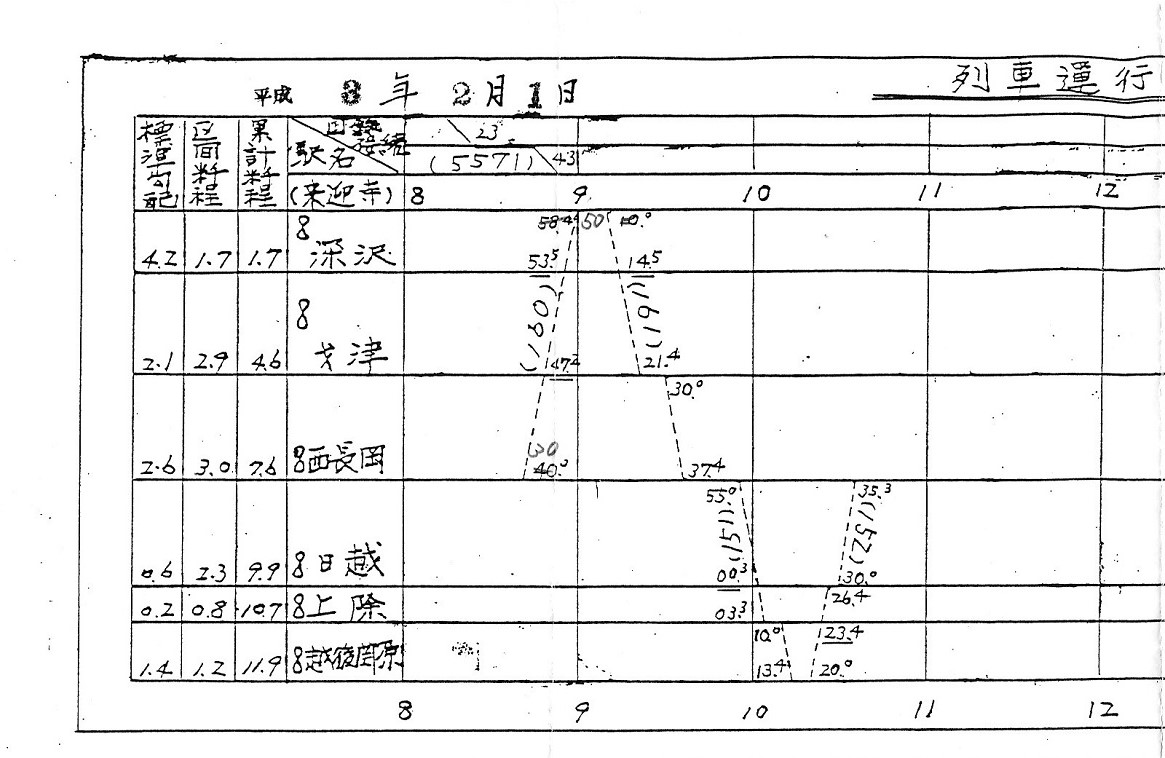 列車運行
平成 3年 2月 1日
標準勾配 区間粁程 累計粁程 駅名 接続 23
(5571) 43
(来迎寺) 8 9 10 11 12
58.4 50 10.0
4.2 1.7 1.7 8 深沢 53.5 14.5
(180) (191)
2.1 2.9 4.6 8 才津 47.2 21.4
30.0
30
2.6 3.0 7.6 8 西長岡 40.0 37.4
55.0 35.3
(151) (152)
0.6 2.3 9.9 8 日越 00.3 30.0
26.4
0.2 0.8 10.7 8 上除 03.3
10.0 23.4
1.4 1.2 11.9 8 越後関原 13.4 20.0
8 9 10 11 12